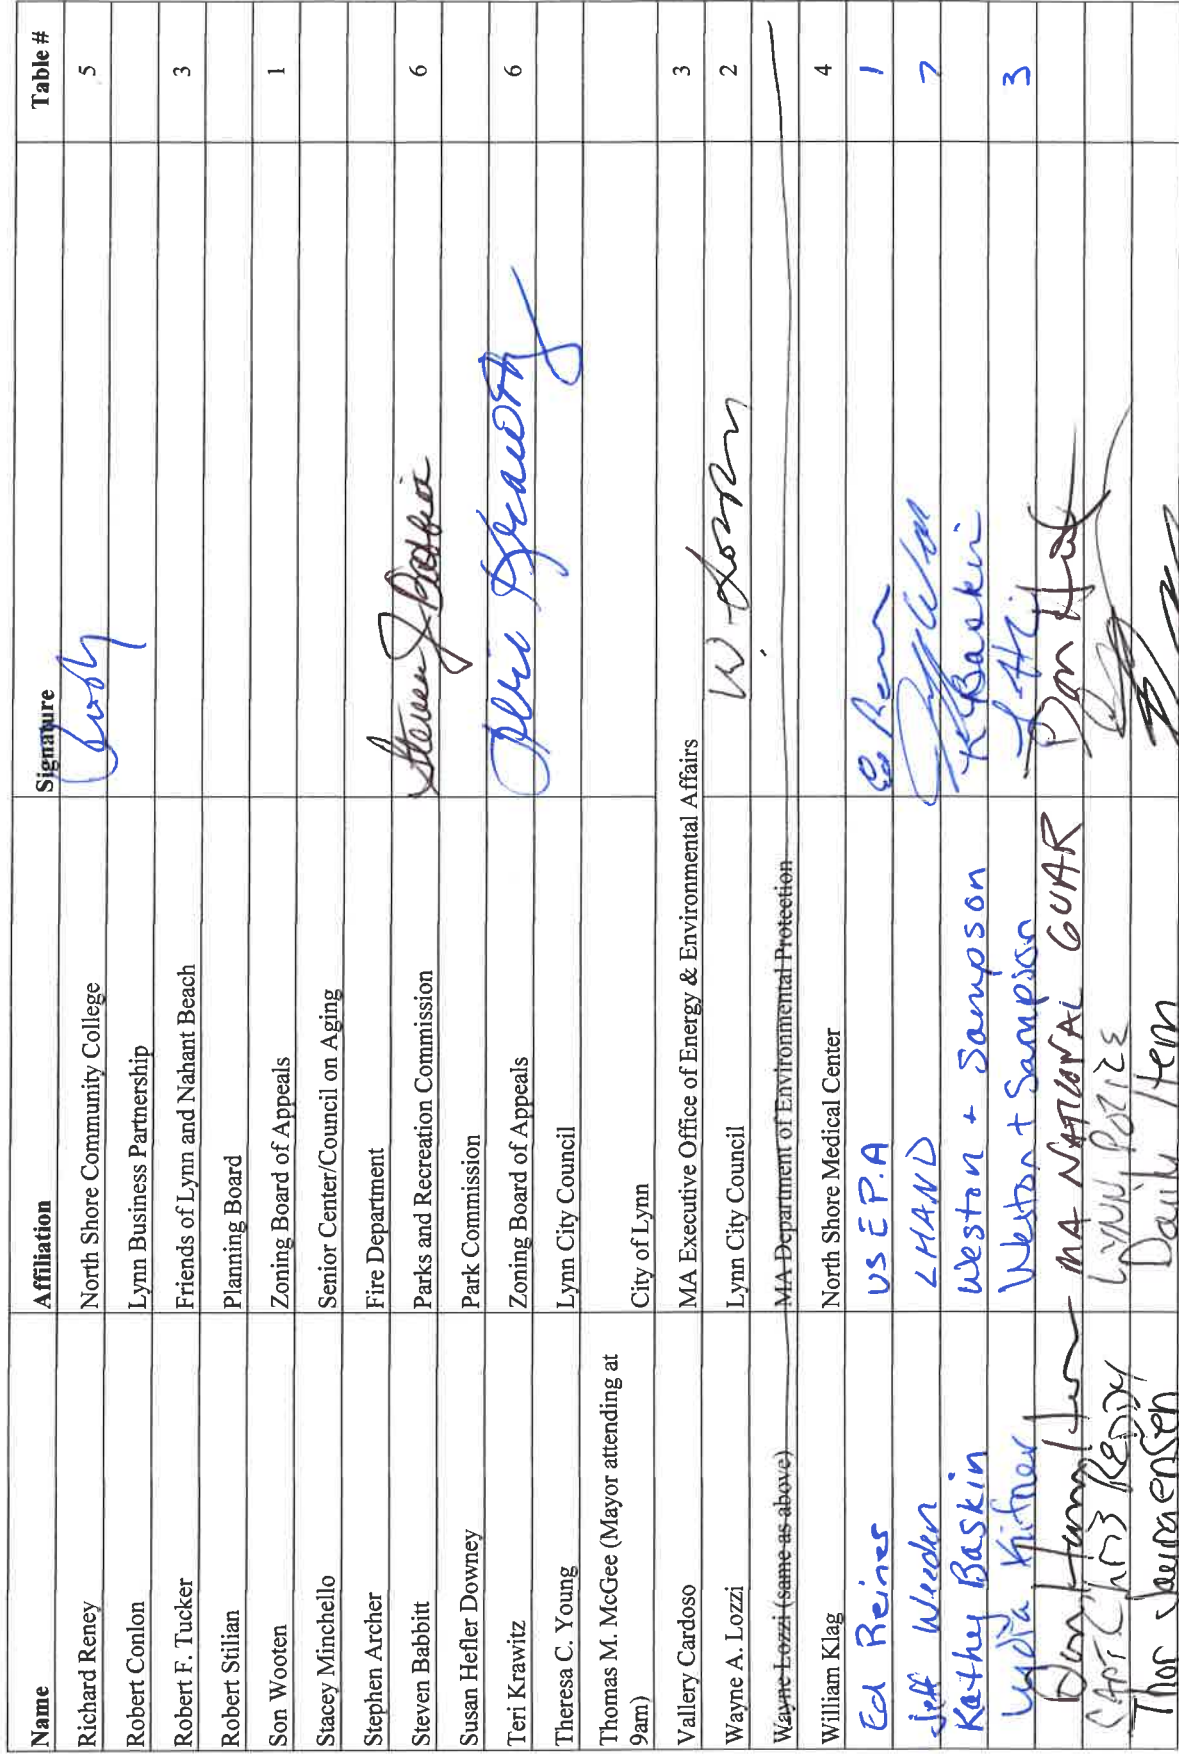 Name Affiliation Signature Table #
Richard Reney North Shore Community College 5
Robert Conlon Lynn Business Partnership
Robert F. Tucker Friends of Lynn and Nahant Beach 3
Robert Stilian Planning Board
Son Wooten Zoning Board of Appeals 1
Stacey Minchello Senior Center/Council on Aging
Stephen Archer Fire Department
Steven Babbitt Parks and Recreation Commission Steven J. Babbitt 6
Susan Hefler Downey Park Commission
Teri Krawitz Zoning Board of Appeals 6
Theresa C. Young Lynn City Council
Thomas M. McGee (Mayor attending at
9am) City of Lynn
Vallery Cardoso MA Executive Office of Energy & Environmental Affairs 3
Wayne A. Lozzi Lynn City Council W. Lozzi 2
Wayne Lozzi (same as above) MA Department of Environmental Protection
William Klag North Shore Medical Center 4
Ed Reiner US E.P.A Ed 1
Jeff Weeden LHAND 7
Kathy Baskin Weston + Sampson K Baskin
Lydia Weston + Sampson 3
Dan MA NATIONAL GUAR
CAPT Chris Reddy LYNN
Thor Jourgensen Daily Item